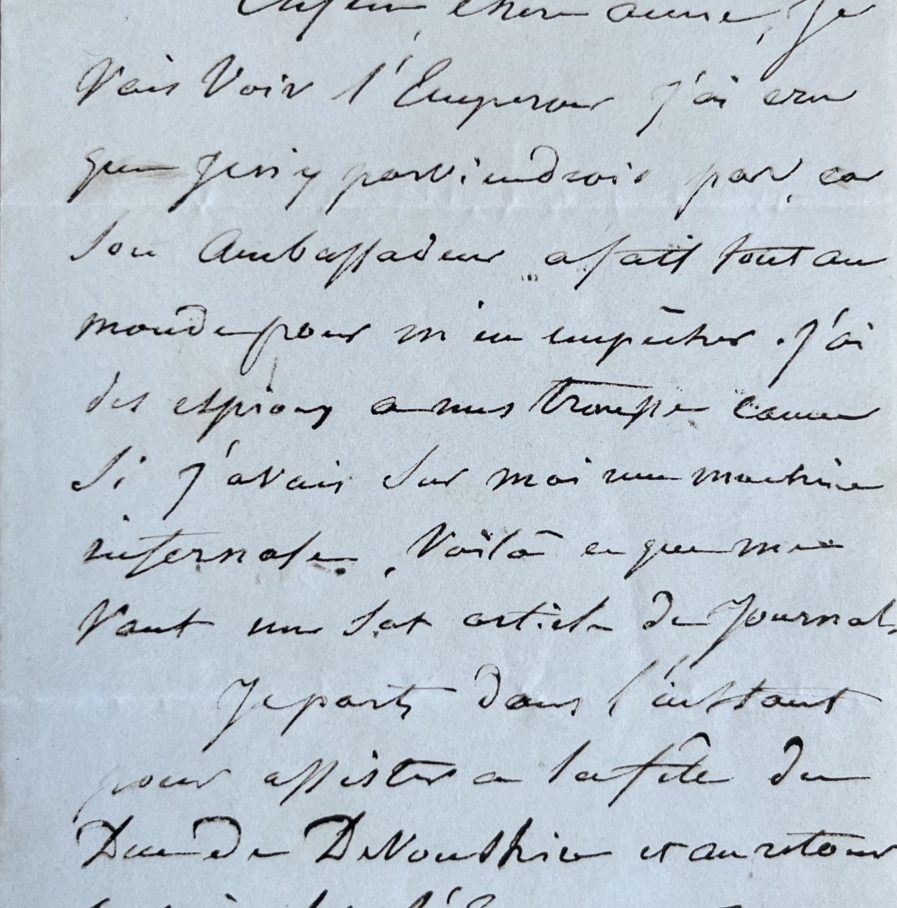 Enfin, cher amie, Je
Vais Voir l'Empereur J'ai cru
que Je n'y parviendrois pas, car
Son Ambassadeur a fait tout au
monde pour m'en empêcher. J'ai
des espions a mes trousse comme
Si j'avais Sur moi une machine
infernale. Voilà ce que me
Vaut un Sot article de Journal.
Je parts dans l'instant
pour assister a la fête du
Duc de Devonshire et au retour